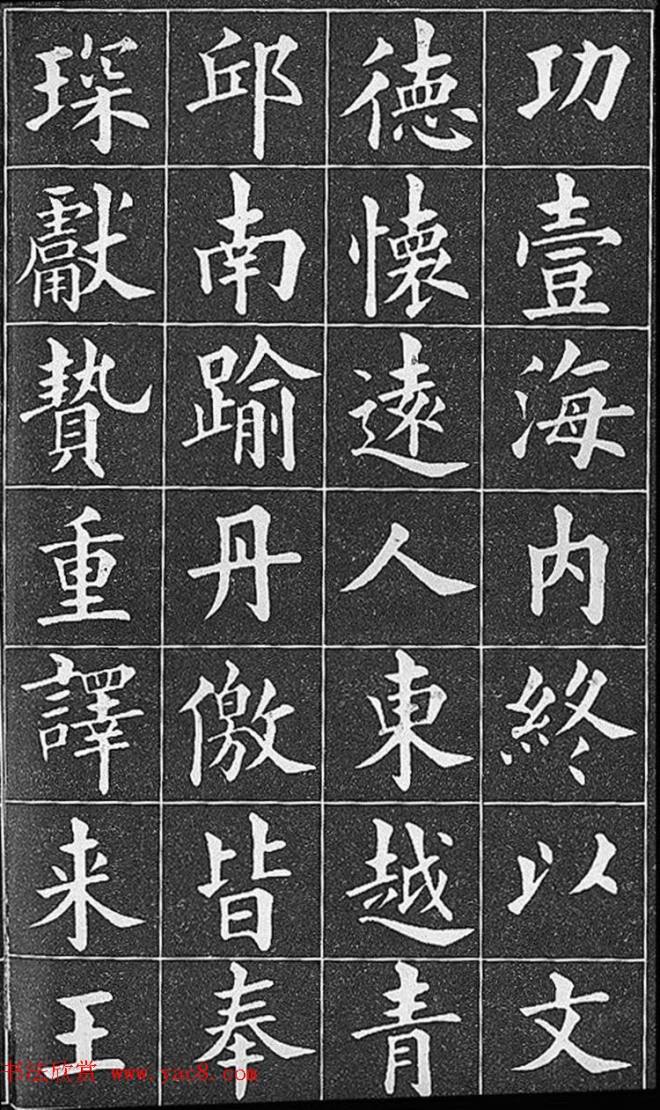 功壹海内終以文
德懷遠人東越青
邱南踰丹儌皆奉
琛獻贄重譯来王
书法欣赏 www.yac8.com